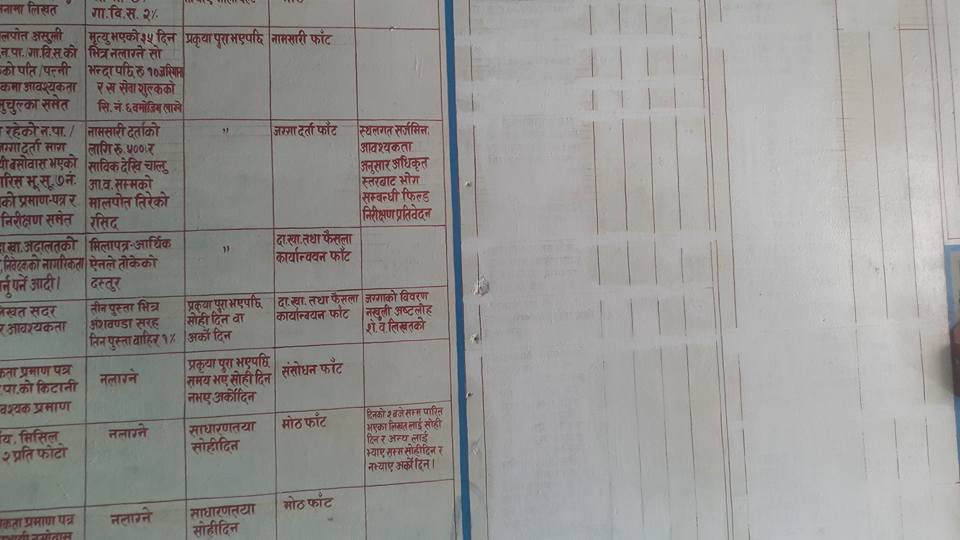 नामा लिखत
गा.वि.स. २%
मोठ
लपोत असुली
न.पा./गा.वि.स.की
को पति/पत्नी
कमा आवश्यकता
मुचुल्का समेत
मृत्यु भएको ३५ दिन
भित्र नलाग्ने सो
भन्दा पछि रु १० जरिवाना
र स सेवा शुल्कको
सि. नं. ६ बमोजिम लाग्ने
प्रकृया पुरा भएपछि
नामसारी फाँट
रहेको न.पा./
जग्गा दर्ता माग
बसोवास भएको
भू.सू. ७ नं.
को प्रमाण-पत्र र
निरीक्षण समेत
नामसारी दर्ताको
लागि रु. ५००।र
साविक देखि चालु
आ.व. सम्मको
मालपोत तिरेको
रसिद
"
जग्गा दर्ता फाँट
स्थलगत सर्जमिन,
आवश्यकता
अनुसार अधिकृत
स्तरबाट भोग
सम्बन्धी फिल्ड
निरीक्षण प्रतिवेदन
दा.खा. अदालतको
निवेदकको नागरिकता
र्नु पर्ने आदी।
मिलापत्र-आर्थिक
ऐनले तोकेको
दस्तुर
"
दा.खा. तथा फैसला
कार्यान्वयन फाँट
लिखत सदर
र आवश्यकता
तीन पुस्ता भित्र
अंशवण्डा सरह
तिन पुस्ता वाहिर १%
प्रकृया पुरा भएपछि
सोही दिन वा
अर्को दिन
दा.खा. तथा फैसला
कार्यान्वयन फाँट
जग्गाको विवरण
नखुली अष्टलोह
शे.व. लिखतको
कता प्रमाण पत्र
.पा.को किटानी
वश्यक प्रमाण
नलाग्ने
प्रकृया पुरा भएपछि
समय भए सोही दिन
नभए अर्को दिन
संसोधन फाँट
मिसिल
२ प्रति फोटो
नलाग्ने
साधारणतया
सोही दिन
मोठ फाँट
दिनको २ बजे सम्म पारित
भएका लिखत लाई सोही
दिन र अन्य लाई
भ्याए सम्म सोही दिन र
नभ्याए अर्को दिन।
कता प्रमाण पत्र
नलाग्ने
साधारणतया
सोही दिन
मोठ फाँट